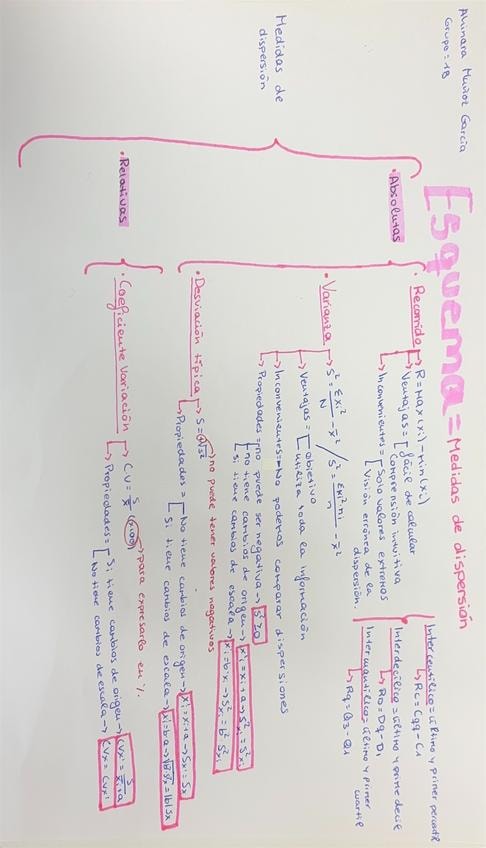 Ahinara Muñoz García
Grupo = 1B
Esquema = Medidas de dispersión
Medidas de dispersión
• Absolutas
• Recorrido
R = Max (xi) - min (xi)
Ventajas = Fácil de calcular
Comprensión intuitiva
Inconvenientes = Solo valores extremos
Visión errónea de la dispersión.
Intercentílico = último y primer percentil
Rc = C99 - C1
Interdecílico = último y primer decil
RD = D9 - D1
Intercuartílico = último y primer cuartil
RQ = Q3 - Q1
• Varianza
S² = Σxi²/N - x̄² / S² = Σxi²ni/n - x̄²
Ventajas = objetivo
utiliza toda la información
Inconvenientes = No podemos comparar dispersiones
Propiedades = no puede ser negativa → S² ≥ 0
no tiene cambios de origen → x'i = xi + a → S²x'i = S²xi
Si tiene cambios de escala → x'i = b·xi → S²x'i = b² S²xi
• Desviación típica
S = +√S²
no puede tener valores negativos
Propiedades = No tiene cambios de origen → x'i = xi + a → Sx'i = Sxi
Si tiene cambios de escala →
• Relativas
• Coeficiente Variación
CV = S/x̄ (·100) para expresarlo en %.
Propiedades = Si tiene cambios de origen → CVx' = S/x̄ + a
No tiene cambios de escala → CVx = CVx'